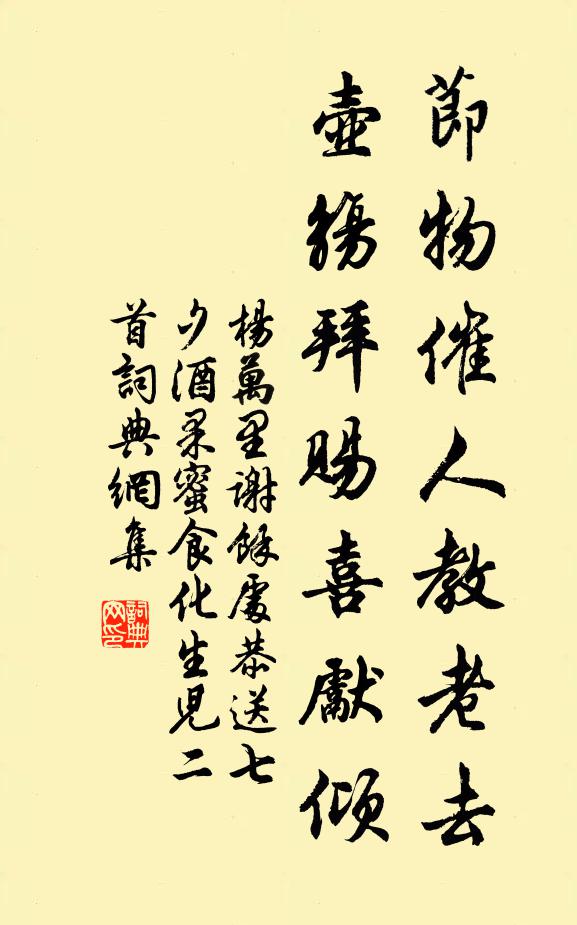 節物催人教老去
壺觴拜賜喜獻傾
楊萬里謝餘處恭送七
夕酒果蜜食化生兒二
首詞典網集
詞典網印